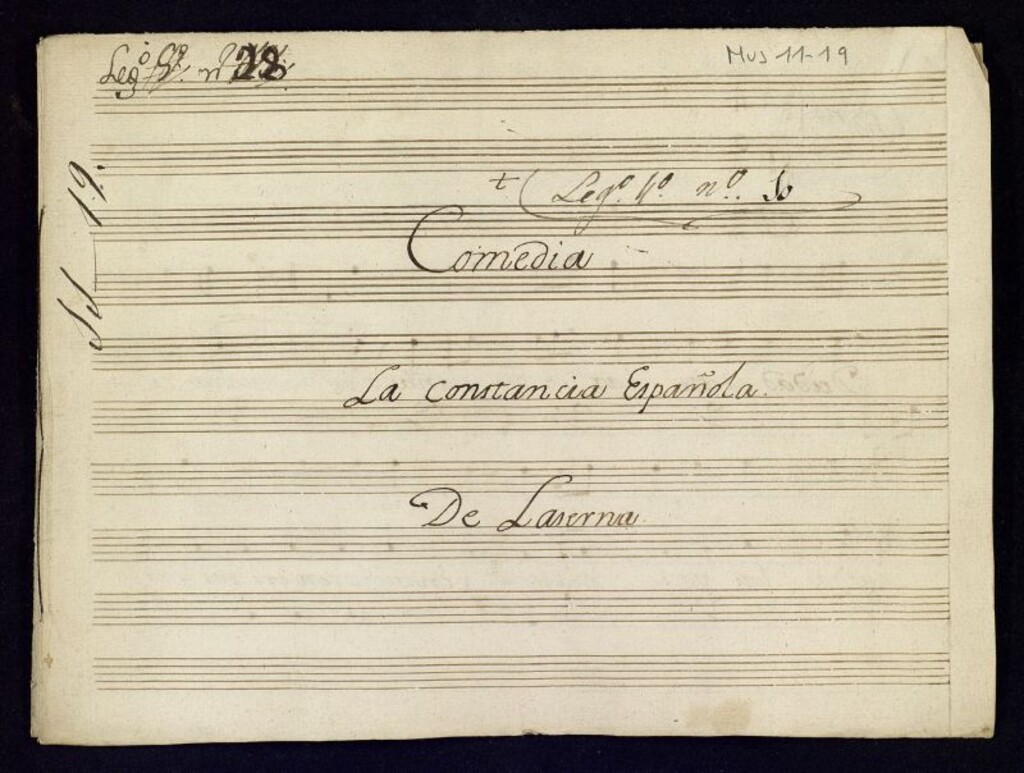 Leg.º nº 28
Mus 11-19
Leg.º nº
Comedia
La Constancia Española.
De Laserna.